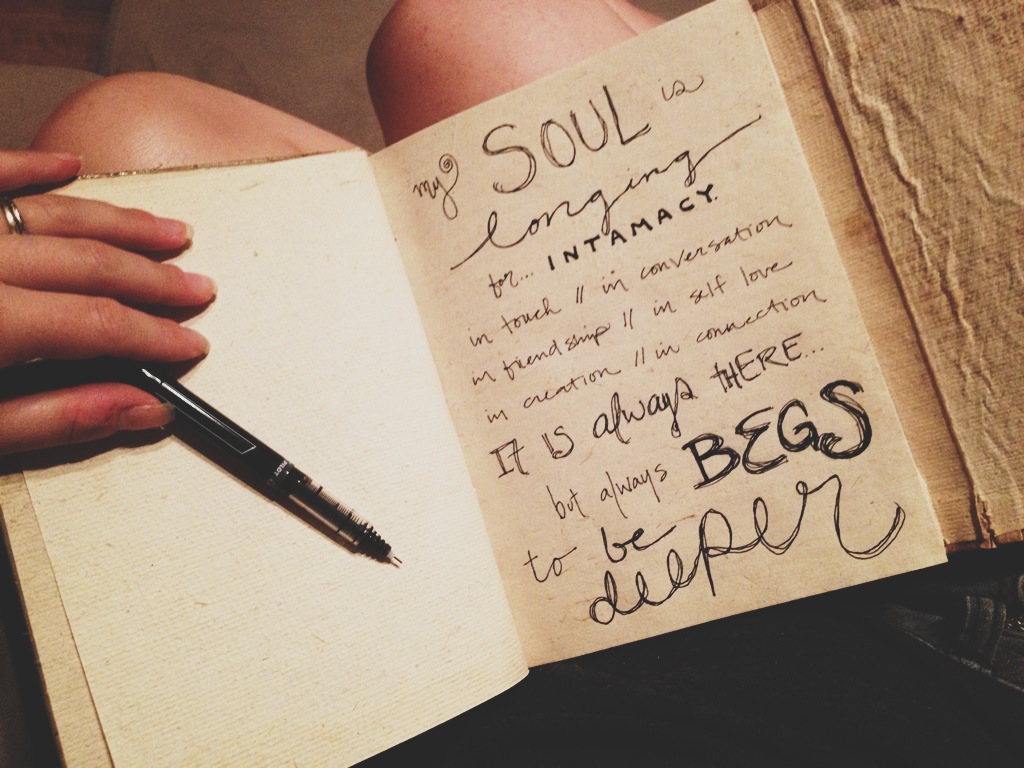 my SOUL is
longing
for... INTAMACY.
in touch // in conversation
in friendship // in self love
in creation // in connection
IT IS always THERE...
but always BEGS
to be
deeper
PILOT